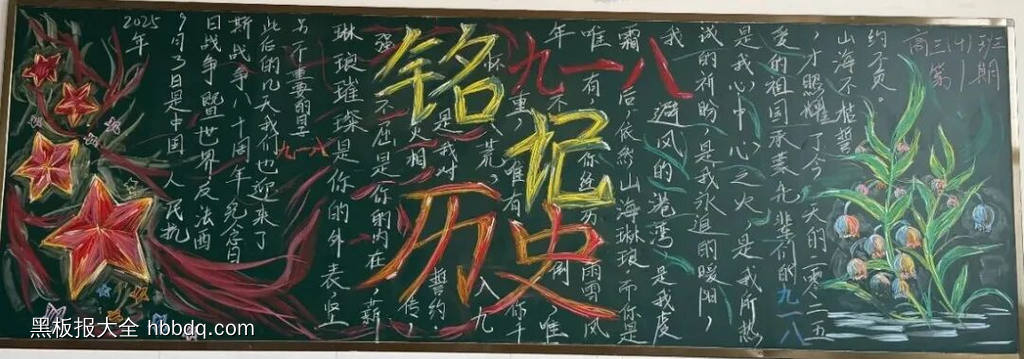 高三(十)班
第1期
铭记
历史
九一八
约不负。
山海不枯誓
,才照耀了今天的二零二五
爱的祖国承载先辈们的九一八
是我心中心之火,是我所热
诚的祈盼,是我永追的暖阳,
我避风的港湾是我虔
霜后,依然山海琳琅,而你是
唯有你经历雨雪风
年不倒,唯
怀八荒。重,唯有你千
是我对誓约.入九
火相传,
强不屈是你的内在薪
琳琅璀璨是你的外表坚
另一个重要的日子九一八
此后的几天我们也迎来了
斯战争八十周年纪念日
日战争暨世界反法西
9月3日是中国人民抗
2025年
黑板报大全 hbbdq.com